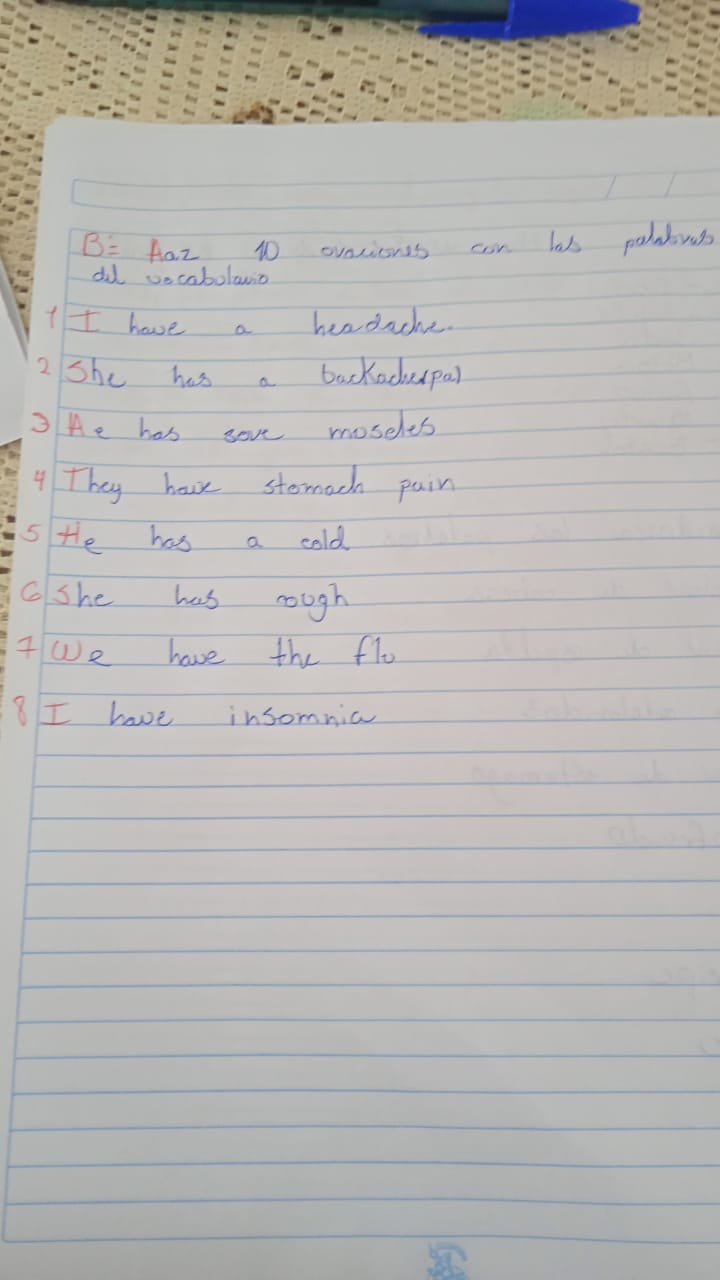 B= Aaz 10 oraciones con las palabras
del vocabulario
1 I have a headache.
2 She has a
3 He has sore moseles
4 They have stomach pain
5 He has a cold
6 She has cough
7 We have the flu
8 I have insomnia